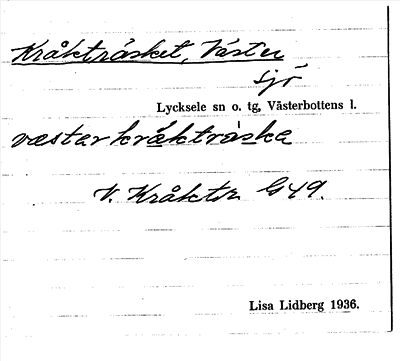 Kråkträsket, Väster
sjö
Lycksele sn o. tg, Västerbottens l.
væstarkråktràska
V. Kråktr. G49.
Lisa Lidberg 1936.